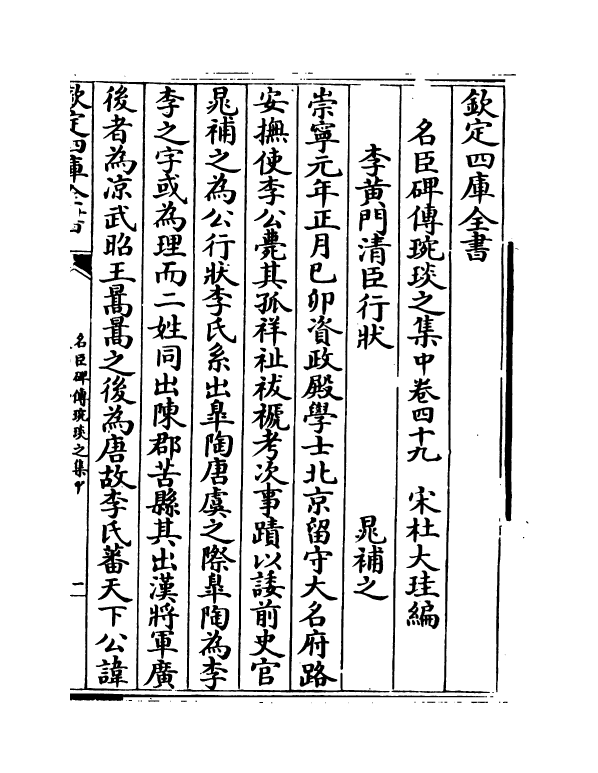 欽定四庫全書
名臣碑傳琬琰之集中卷四十九　宋杜大珪編
李黄門清臣行狀　晁補之
崇寧元年正月己卯資政殿學士北京留守大名府路
安撫使李公薨其孤祥祉袚禠考次事蹟以諉前史官
晁補之為公行狀李氏系出臯陶唐虞之際臯陶為李
李之字或為理而二姓同出陳郡苦縣其出漢將軍廣
後者為凉武昭王暠暠之後為唐故李氏蕃天下公諱
欽定四庫全書
名臣碑傳琬琰之集中
二